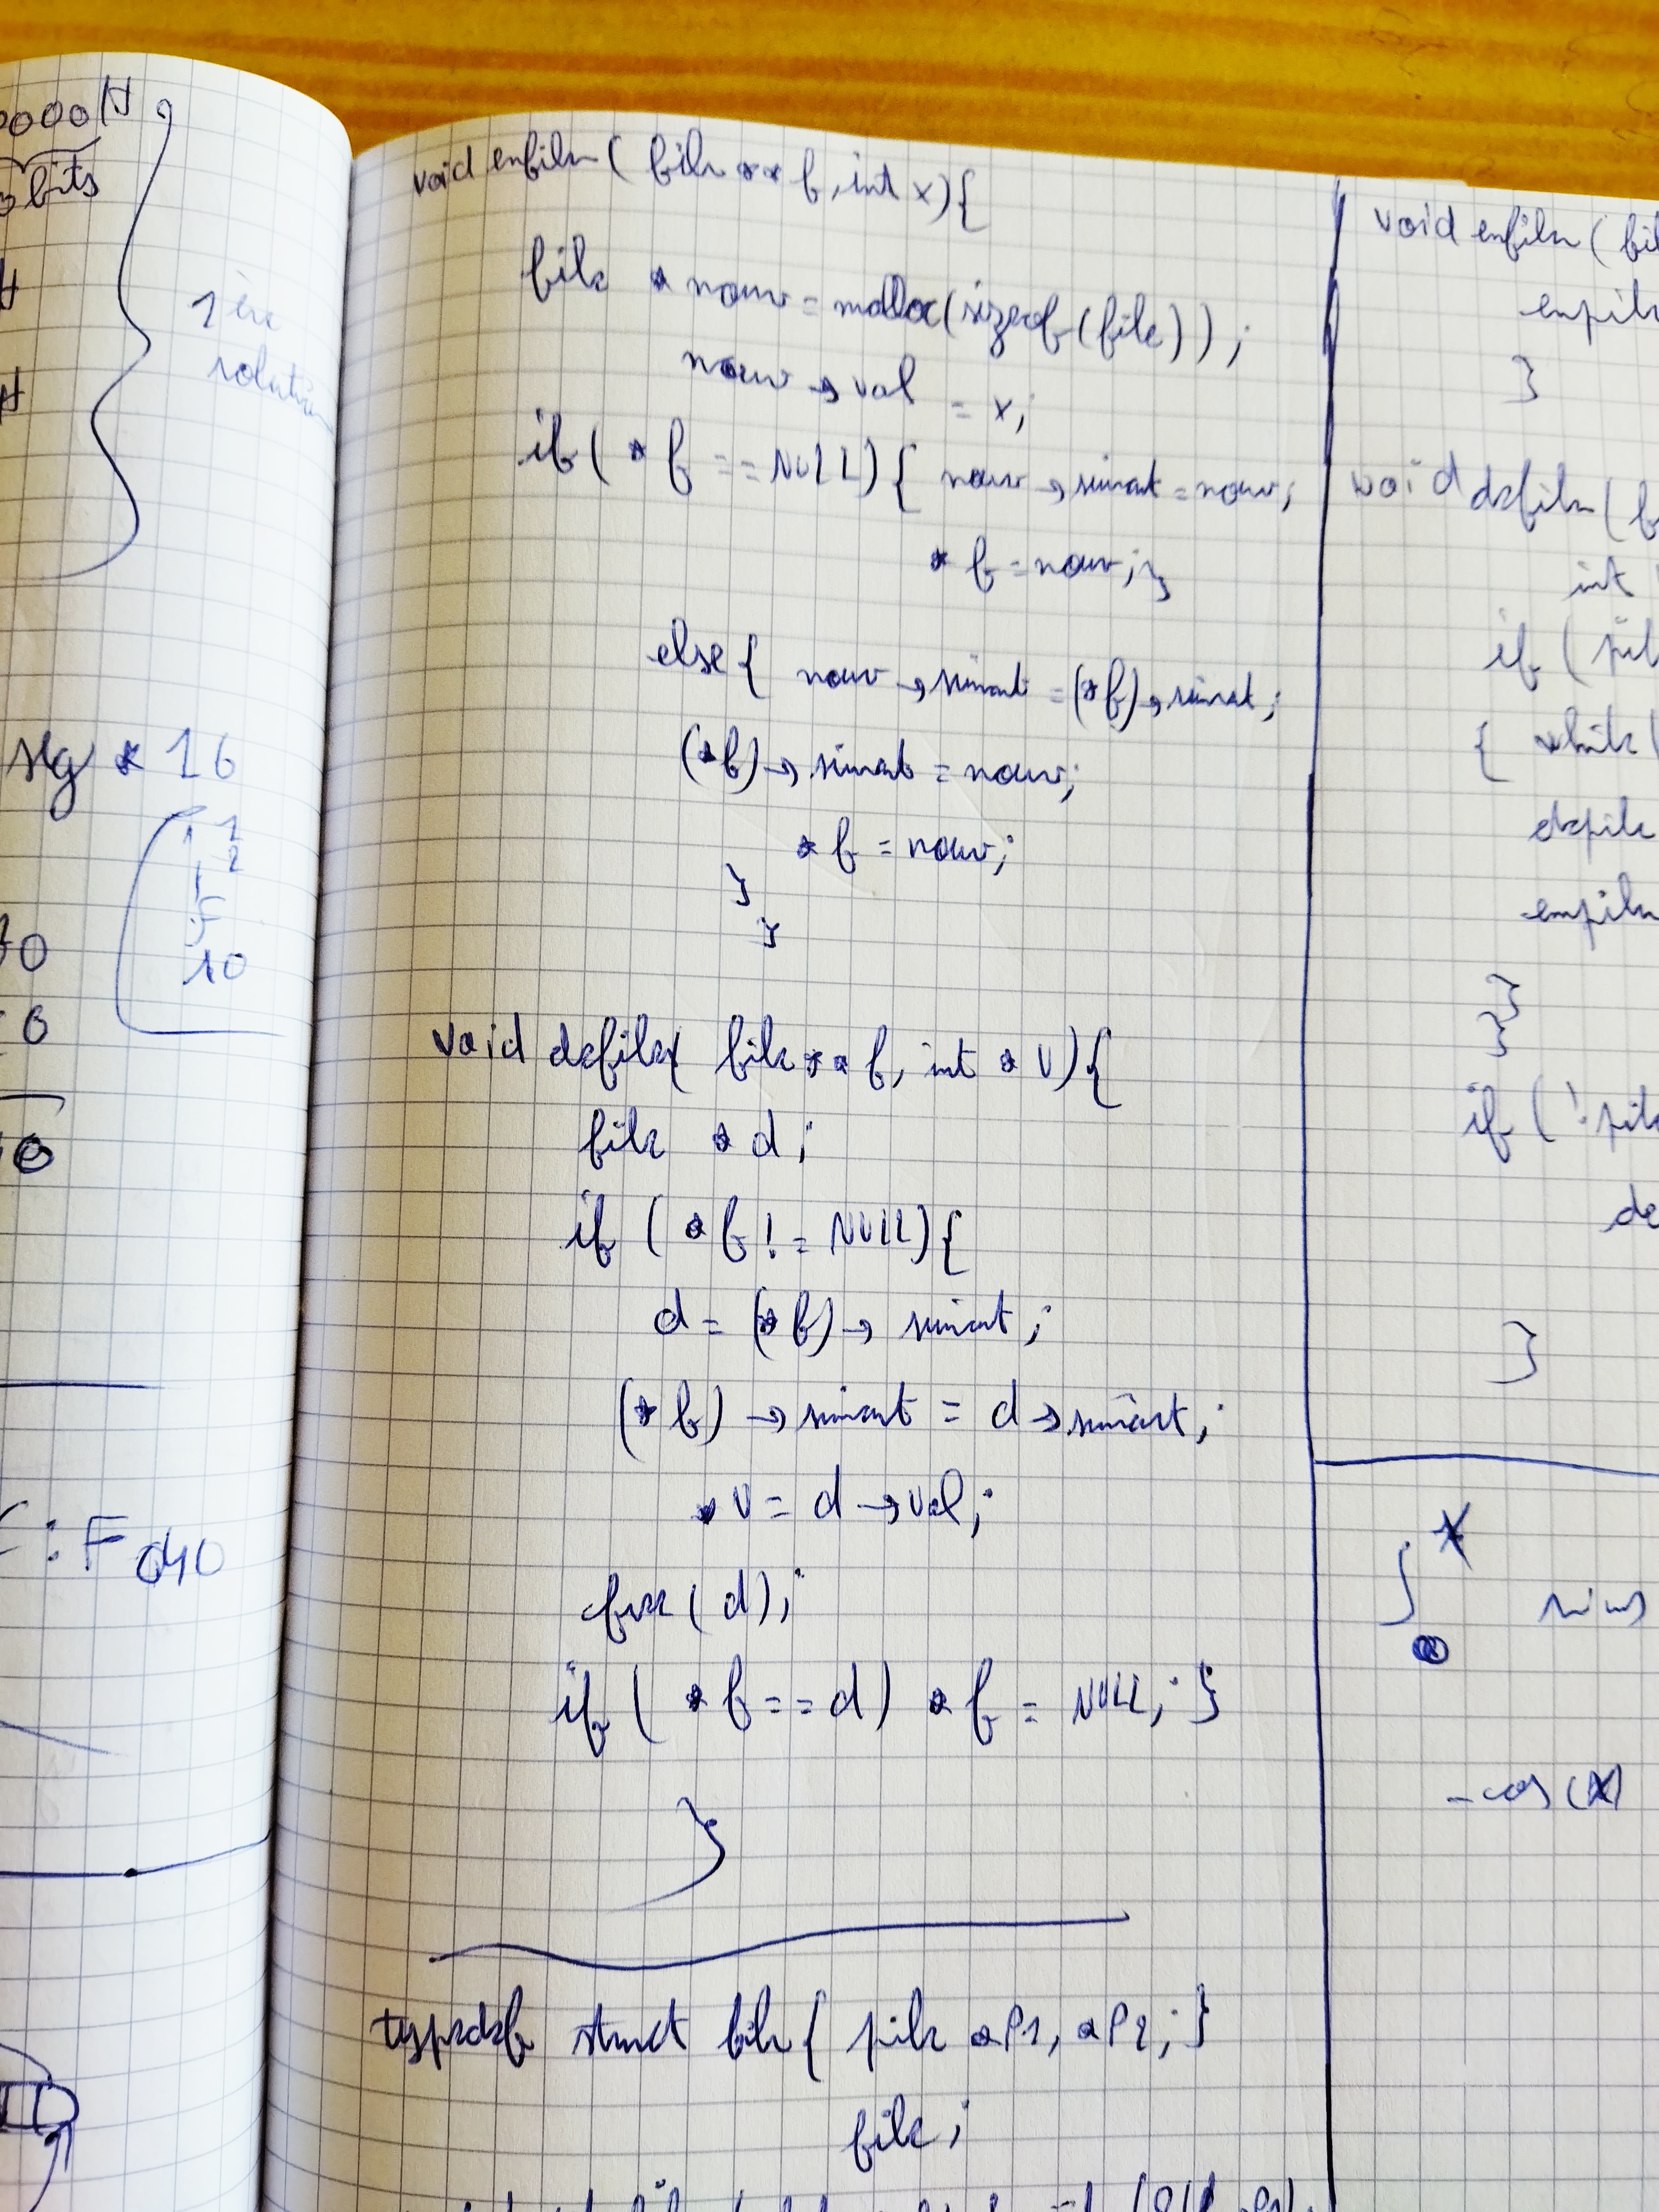 0000H
bits
1ère
solution
seg * 16
1
2
10
0
0
0
: F
void enfiler( file ** f, int x){
file * nouv = malloc(sizeof(file));
nouv → val = x;
if ( * f == NULL) { nouv → suivant = nouv;
* f = nouv; }
else { nouv → suivant = (*f) → suivant;
(*f) → suivant = nouv;
* f = nouv;
}
}
void defiler( file ** f, int * v){
file * d;
if ( * f != NULL) {
d = (* f) → suivant;
(* f) → suivant = d → suivant;
* v = d → val;
free( d);
if ( * f == d) * f = NULL; }
}
typedef struct file { pile *P1, *P2; }
file;
void enfiler( fil
empile
}
void defiler( f
int
if ( pil
{ while (
depile
empiler
}
}
if ( ! pile
de
}
∫
- cos (X)